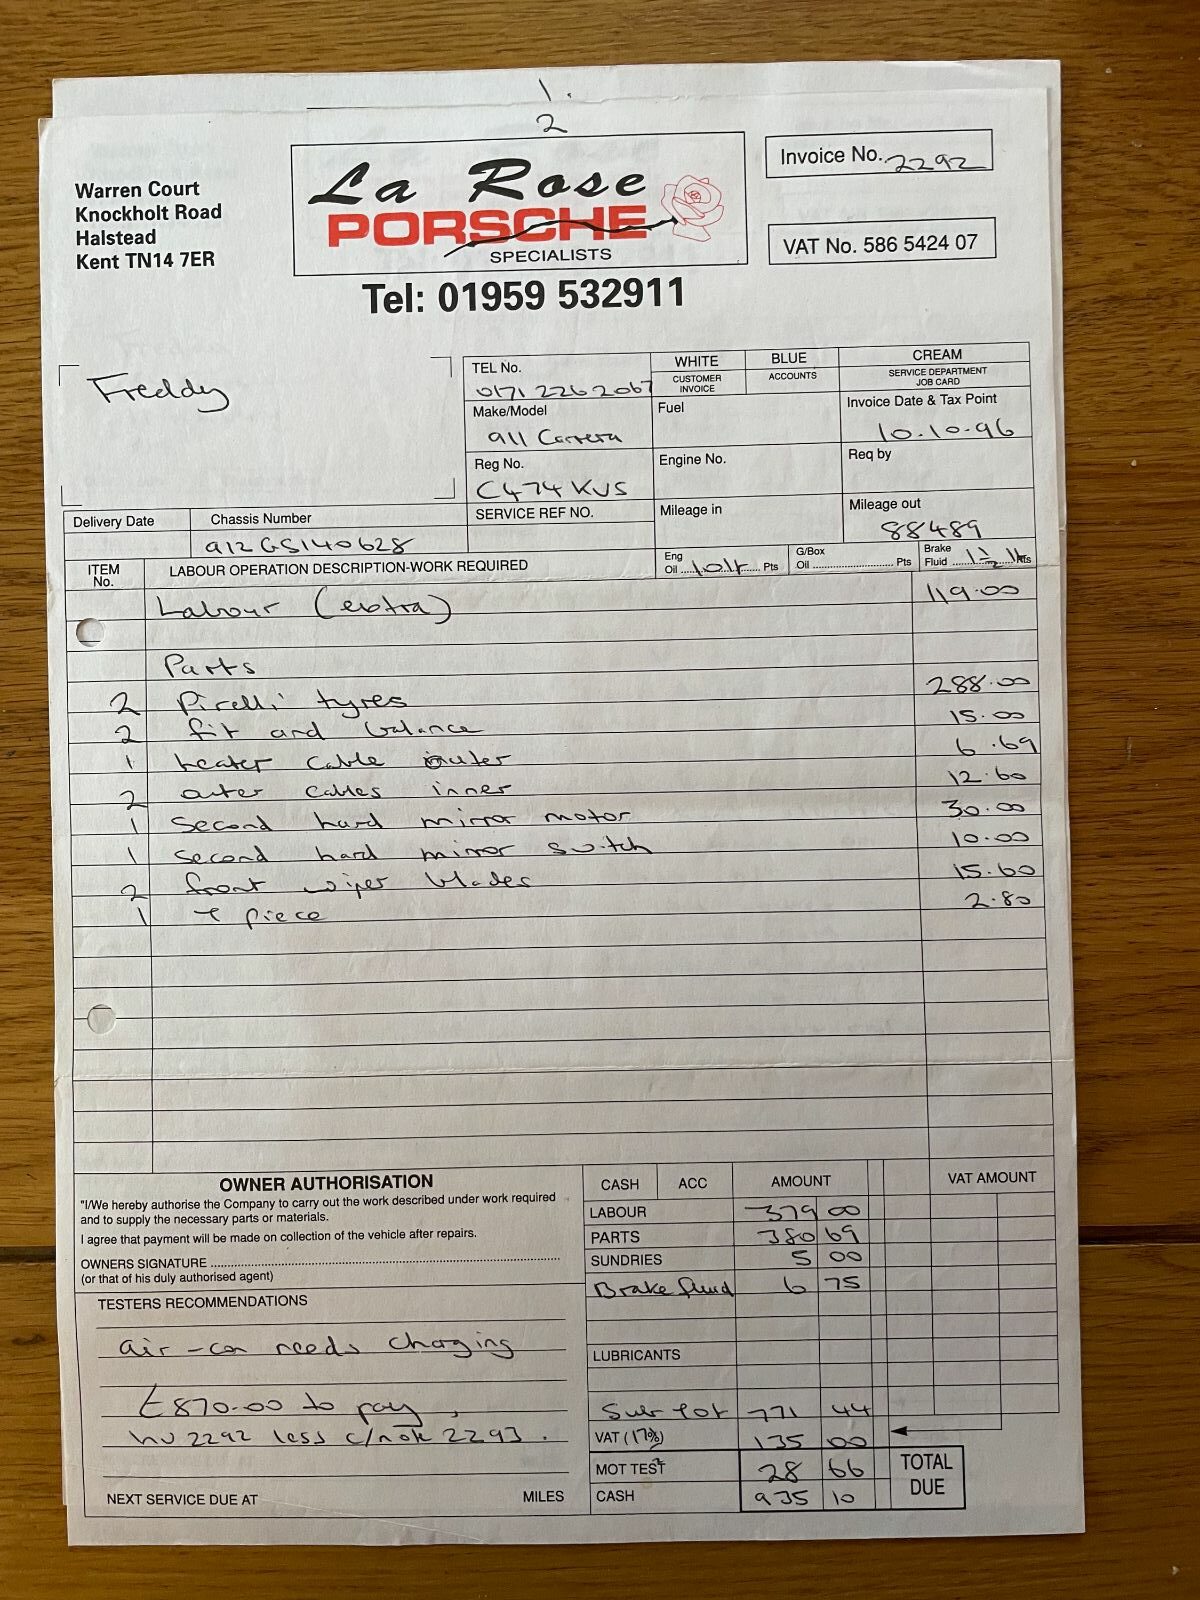 1.
2
La Rose
PORSCHE
SPECIALISTS
Tel: 01959 532911
Warren Court
Knockholt Road
Halstead
Kent TN14 7ER
Invoice No. 2292
VAT No. 586 5424 07
Freddy
TEL No. 0171 226 2067
WHITE CUSTOMER INVOICE
BLUE ACCOUNTS
CREAM SERVICE DEPARTMENT JOB CARD
Make/Model 911 Carrera
Fuel
Invoice Date & Tax Point 10.10.96
Reg No. C474 KUS
Engine No.
Req by
Delivery Date
Chassis Number 912 GS140628
SERVICE REF NO.
Mileage in
Mileage out 88489
ITEM No.
LABOUR OPERATION DESCRIPTION-WORK REQUIRED
Eng Oil 10lt Pts
G/Box Oil Pts
Brake Fluid 1½ lt Pts
Labour (extra) 119.00
Parts
2 Pirelli tyres 288.00
2 fit and balance 15.00
1 heater cable outer 6.69
2 outer cables inner 12.60
1 second hand mirror motor 30.00
1 second hand mirror switch 10.00
2 front wiper blades 15.60
1 T piece 2.80
OWNER AUTHORISATION
"I/We hereby authorise the Company to carry out the work described under work required
and to supply the necessary parts or materials.
I agree that payment will be made on collection of the vehicle after repairs.
OWNERS SIGNATURE
(or that of his duly authorised agent)
TESTERS RECOMMENDATIONS
air-con needs charging
£870.00 to pay,
inv 2292 less c/note 2293.
NEXT SERVICE DUE AT MILES
CASH ACC AMOUNT VAT AMOUNT
LABOUR 379 00
PARTS 380 69
SUNDRIES 5 00
Brake fluid 6 75
LUBRICANTS
Sub tot 771 44
VAT (17½%) 135 00
MOT TEST 28 66
CASH 935 10
TOTAL DUE